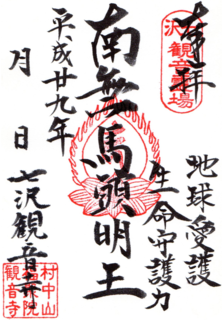 奉拝
地球愛護
生命守護力
南無馬頭明王
平成廿九年
月 日
七沢観音寺
村中山
観音寺